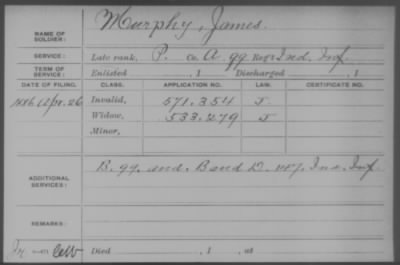 NAME OF SOLDIER: Murphy, James.
SERVICE: Late rank, P. Co. A, 99 Reg't Ind. Inf.
TERM OF SERVICE: Enlisted , 1 Discharged , 1
DATE OF FILING. CLASS. APPLICATION NO. LAW. CERTIFICATE NO.
1886 Apr. 26 Invalid, 571.354 J
Widow, 533.279 J
Minor,
ADDITIONAL SERVICES: B. 99. and. Band D. 147. Ind. Inf.
REMARKS:
Died , 1 , at